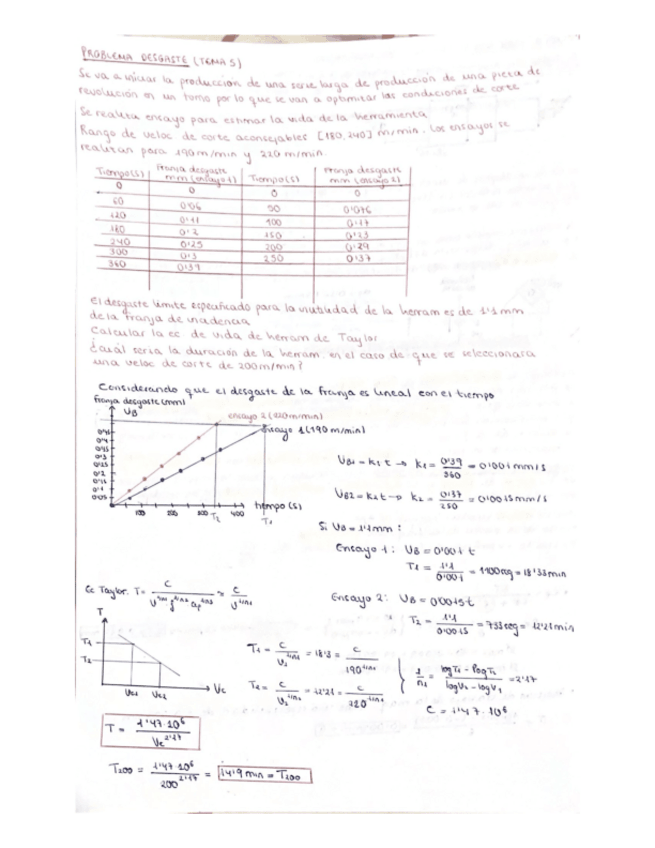 PROBLEMA DESGASTE (TEMA 5)
Se va a iniciar la producción de una serie larga de producción de una pieza de
revolución en un torno por lo que se van a optimizar las condiciones de corte
Se realiza ensayo para estimar la vida de la herramienta.
Rango de veloc de corte aconsejables [180, 240] m/min. Los ensayos se
realizan para 190 m/min y 220 m/min.
Tiempo (s) Franja desgaste mm (ensayo 1) Tiempo (s) Franja desgaste mm (ensayo 2)
0 0 0 0
60 0'06 50 0'076
120 0'11 100 0'17
180 0'2 150 0'23
240 0'25 200 0'29
300 0'3 250 0'37
360 0'39
El desgaste límite especificado para la inutilidad de la herram es de 1'1 mm
de la franja de incidencia
Calcular la ec de vida de herram de Taylor
¿Cuál sería la duración de la herram. en el caso de que se seleccionara
una veloc de corte de 200 m/min?
Considerando que el desgaste de la franja es lineal con el tiempo
Franja desgaste (mm)
VB
ensayo 2 (220 m/min)
ensayo 1 (190 m/min)
0'45
0'4
0'35
0'3
0'25
0'2
0'15
0'1
0'05
100 200 300 T2 400 T1
tiempo (s)
VB1 = k1 t → k1 = 0'39/360 = 0'001 mm/s
VB2 = k2 t → k2 = 0'37/250 = 0'0015 mm/s
Si VB = 1'1 mm :
Ensayo 1: VB = 0'001 t
T1 = 1'1/0'001 = 1100 seg = 18'33 min
Ensayo 2: VB = 0'0015 t
T2 = 1'1/0'0015 = 733 seg = 12'21 min
Ec Taylor: T = C/(V^1/n1 f^1/n2 ap^1/n3) = C/V^1/n1
T
T1
T2
Vc1 Vc2 Vc
T1 = C/V1^1/n1 = 18'3 = C/190^1/n1
T2 = C/V2^1/n1 = 12'21 = C/220^1/n1
1/n1 = (log T1 - log T2)/(log V2 - log V1) = 2'77
C = 1'47 · 10^6
T = 1'47·10^6/Vc^2'17
T200 = 1'47·10^6/200^2'17 = 14'9 min = T200